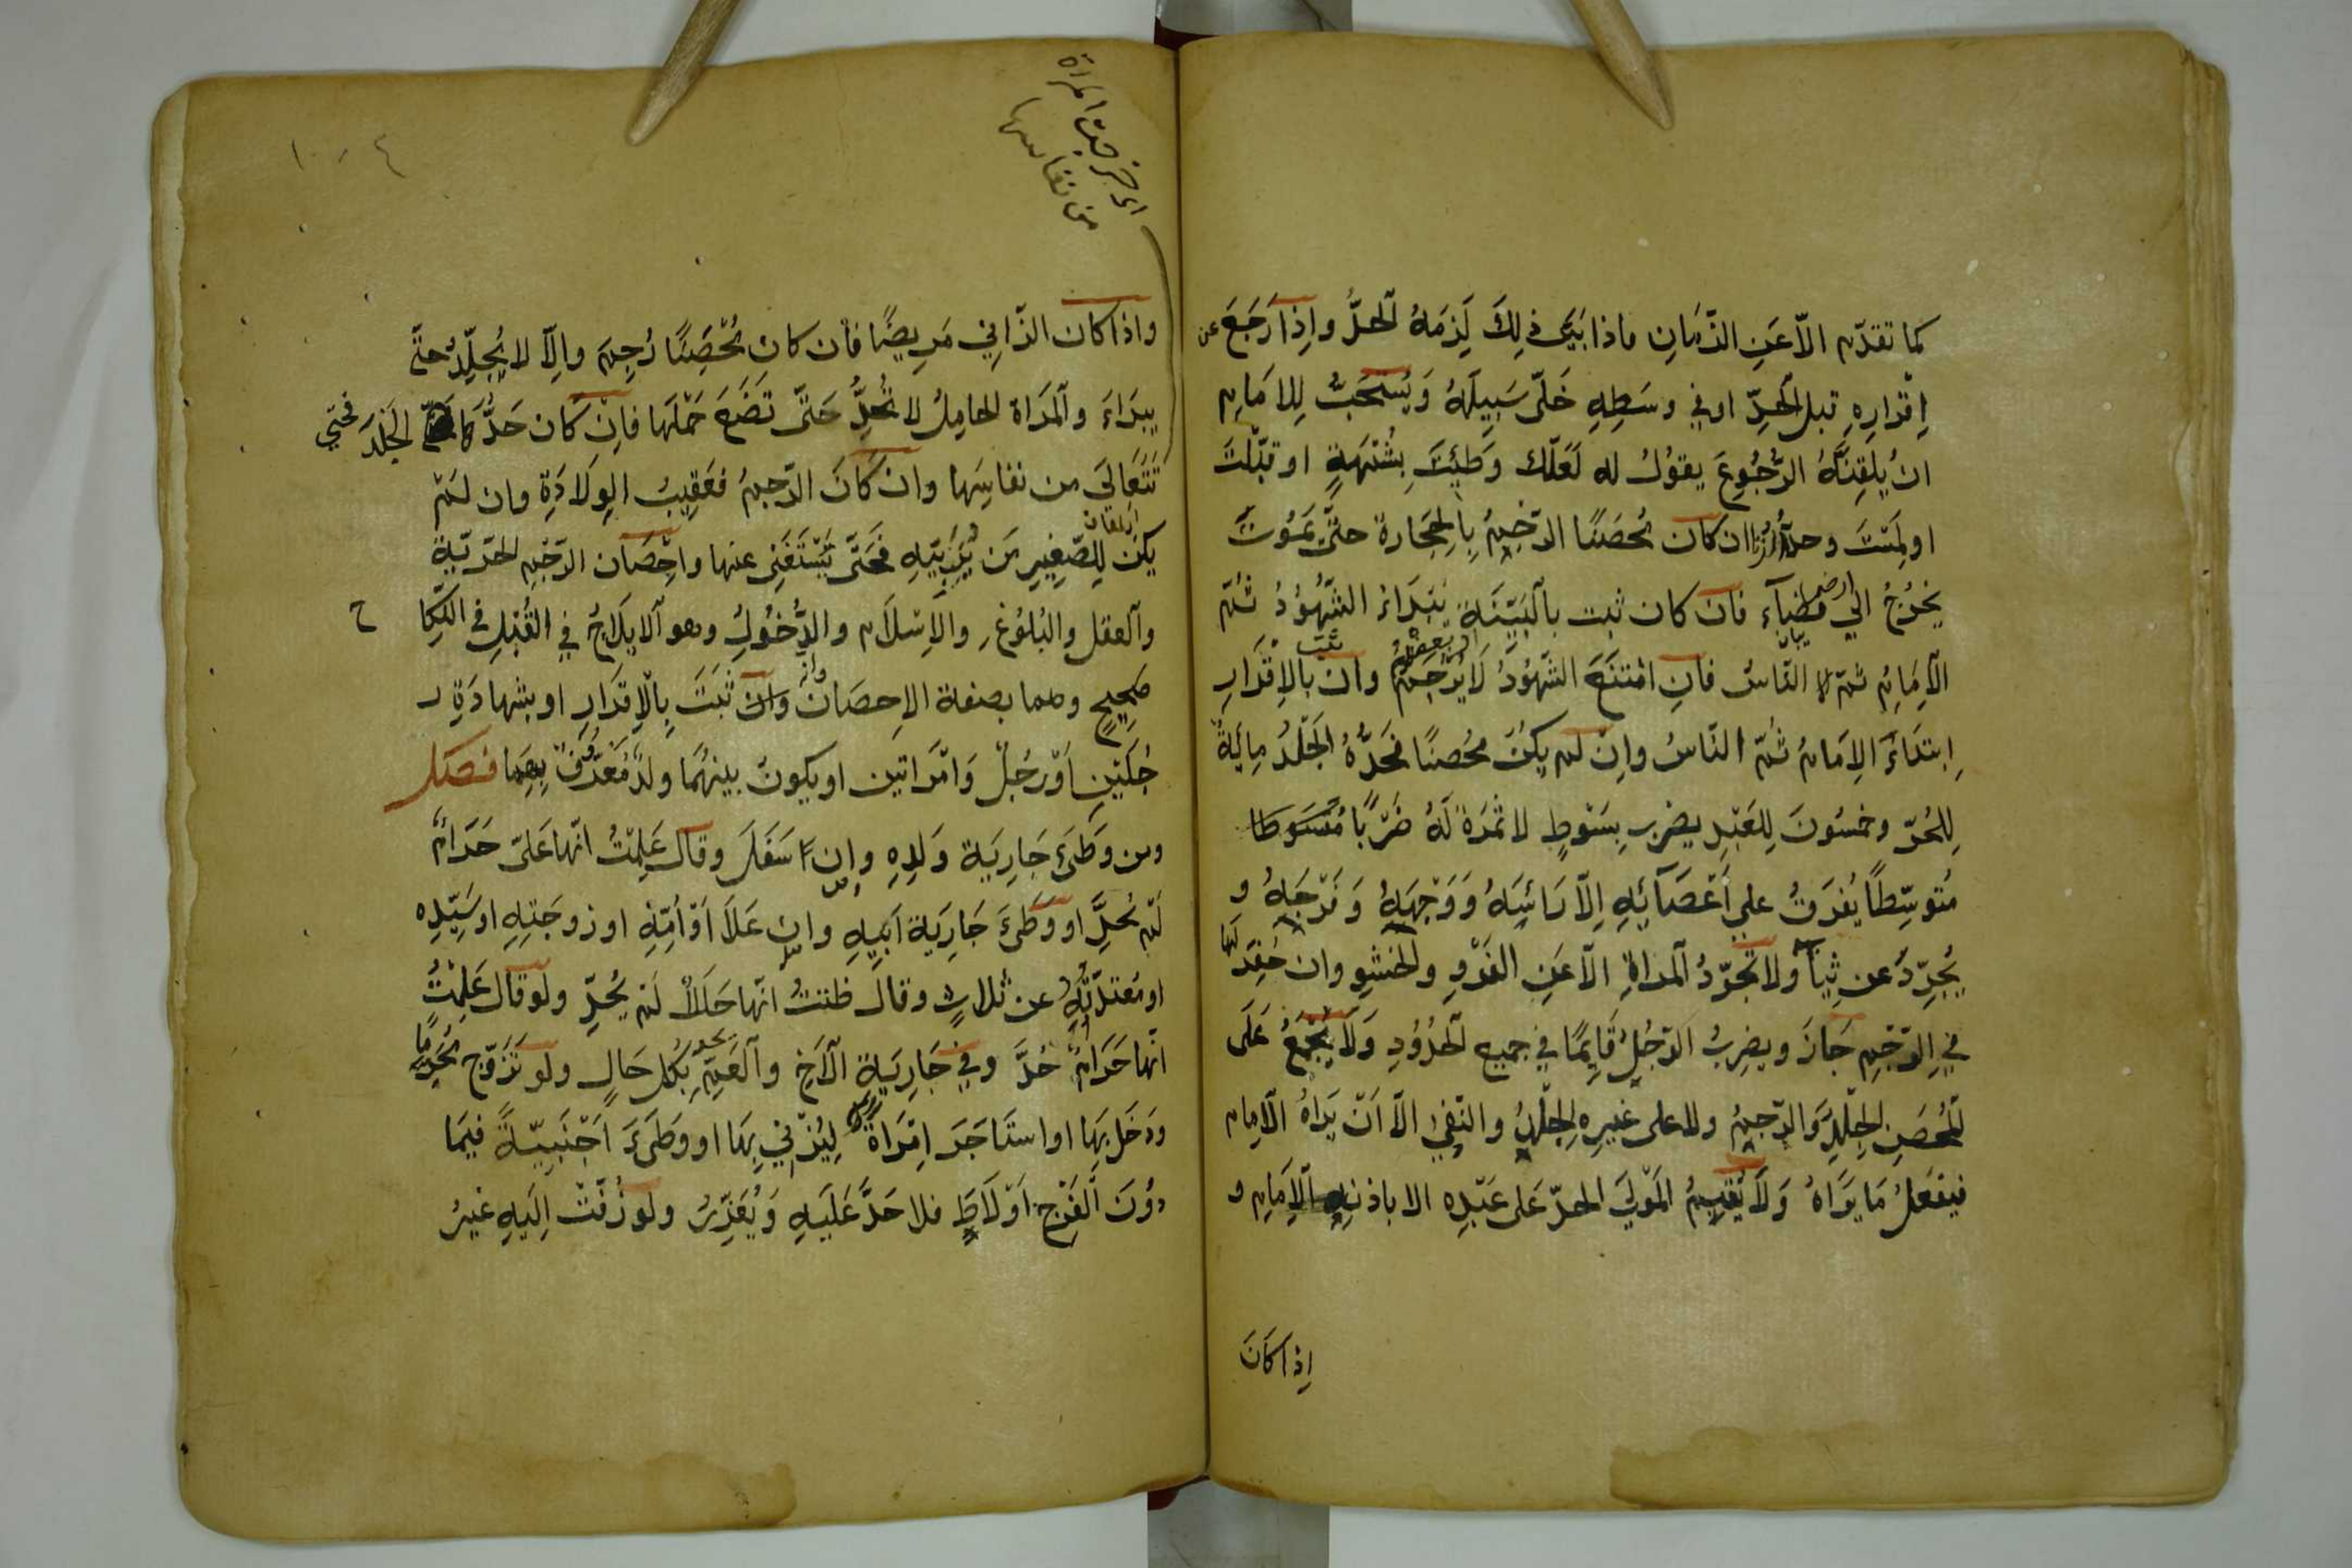 كما تقدّم الاّ عَنِ الزّمَانِ فاذا بَيَّنَ ذٰلِكَ لَزِمَهُ الْحدُّ واِذا رَجَعَ عن
اِقْرارِهِ قبل الْحدِّ او في وسَطِهِ خَلّى سَبيلَهُ وَيُسْتحَبُّ لِلامَامِ
انْ يُلَقِنَهُ الرُّجُوعَ يقوُلُ له لَعَلّك وَطِئْتَ بِشُبْهَةٍ او قبّلْتَ
او لمَسْتَ وحدُّ الزّنا ان كان مُحْصَنًا الرّجمُ بِالحِجَارة حتّى يَمُوتَ
يخْرُجُ الي ارض فضَآء فان كان ثبت بالْبَيّنَةِ يَبْتَداءُ الشّهُوُدُ ثمّ
الاِمَامُ ثمّ النّاسُ فانِ امْتنَعَ الشّهوُدُ او بعضهم لَا يُرْجَمُ وان ثبت بالاِقْرَارِ
اِبتدَاءَ الاِمَامُ ثُمّ النّاسُ واِنْ لم يكُنْ محُصنًا فحَدُّهُ الْجَلْدُ مِائَةٌ
لِلحُرّ وخمسُونَ لِلعَبْدِ يضرب بِسَوْطٍ لا ثمَرَةَ لَهُ ضَرْبًا
مُتوسِّطًا يُفَرَقُ على اَعْضَآئِهِ اِلاّ رَائسَهُ وَوَجْهَهُ وَفَرْجَهُ و
يُجرّدُ عن ثِيابه ولا تُجَرّدُ الْمراةُ الاّ عَنِ الفَرْوِ والحشْوِ وان حُفِرَ لها
فيِ الرّجْمِ جَازَ ويضرِبُ الرّجُلُ قَايِمًا في جميع الْحدُوُدِ وَلَا يُجْمَعُ عَلَى
الْمُحْصَنِ الجلْدُ وَالرّجمُ ولا على غيرِهِ الجلْدُ والنّفىُ الاّ اَنْ يَرَاهُ الْامِام
فيفعَلُ مَا يرَاهُ وَلَا يُقيِمُ الْمَوْليَ الحدّ عَلى عَبْدِه الا باذنِ الْاِمَامِ و
اِذا كَانَ
اى خرجت المراة
من نفاسها
واذا كان الزّانِي مَرِيضًا فان كان مُحْصَنًا رُجِمَ واِلاّ لا يُجلدُ حتّى
يبرَاءَ والْمَراة الحامِلُ لا تُحدُّ حَتّى تضَعَ حَمْلهَا فاِنْ كَان حَدُّهَا الجَلدَ فحتي
تَتَعَاليَ من نفاسِهَا وان كَانَ الرّجمُ فعَقِيبَ الوِلادَةِ وان لَمْ
يكنْ لِلصّغِيرِ مَن يُرَبِّيهِ فحَتّى يَسْتَغْنِىَ عنها واِحْصَان الرّجْمِ الحرّيّةُ
والْعقل والبُلوُغُ والاِسْلاَم والدُّخوُلُ وهو الْايلَاجُ في القُبُلِ في النكاح
صَحِيحٍ وهما بصفة الاِحصَان وان ثَبَتَ بِالْاِقرَارِ او بشهادَةِ ر
جُلَيْنِ اَوْ رَجُلٍ وَامْرَاتين او يكونَ بينهُمَا ولدٌ مَعْرُوفٌ بهِما فصل
ومن وَطَىءَ جَارِيَة وَلدِهِ واِن سَفَلَ وقال عَلِمْتُ انّها عَلىّ حَرَامٌ
لَمْ يُحدَّ او وَطَىءَ جَارِيَة اَبيهِ وان عَلاَ اَوْ اُمّهِ او زوجَتِهِ او سَيّدِه
او مُعْتدّتِهِ عن ثلاثٍ وقال ظننتُ انّها حَلَالٌ لَمْ يُحدَّ ولو قال عَلِمْتُ
انّها حَرَامٌ حُدَّ وفي جَارِيَةِ الْاَخِ والْعَمِّ يحد بِكُلِ حَالٍ ولو تَزَوّج مُحَرمًا
ودَخَل بِهَا او استَاجَرَ اِمْرَاةً لِيَزْنيَ بِهَا او وَطَىءَ اَجْنَبِيّةً فيمَا
دوُنَ الْفَرْج اَوْ لَاطَ فلا حَدَّ عَلَيْهِ وَيُعَزّرُ ولَو زُفّتْ اِلَيْهِ غيْرُ